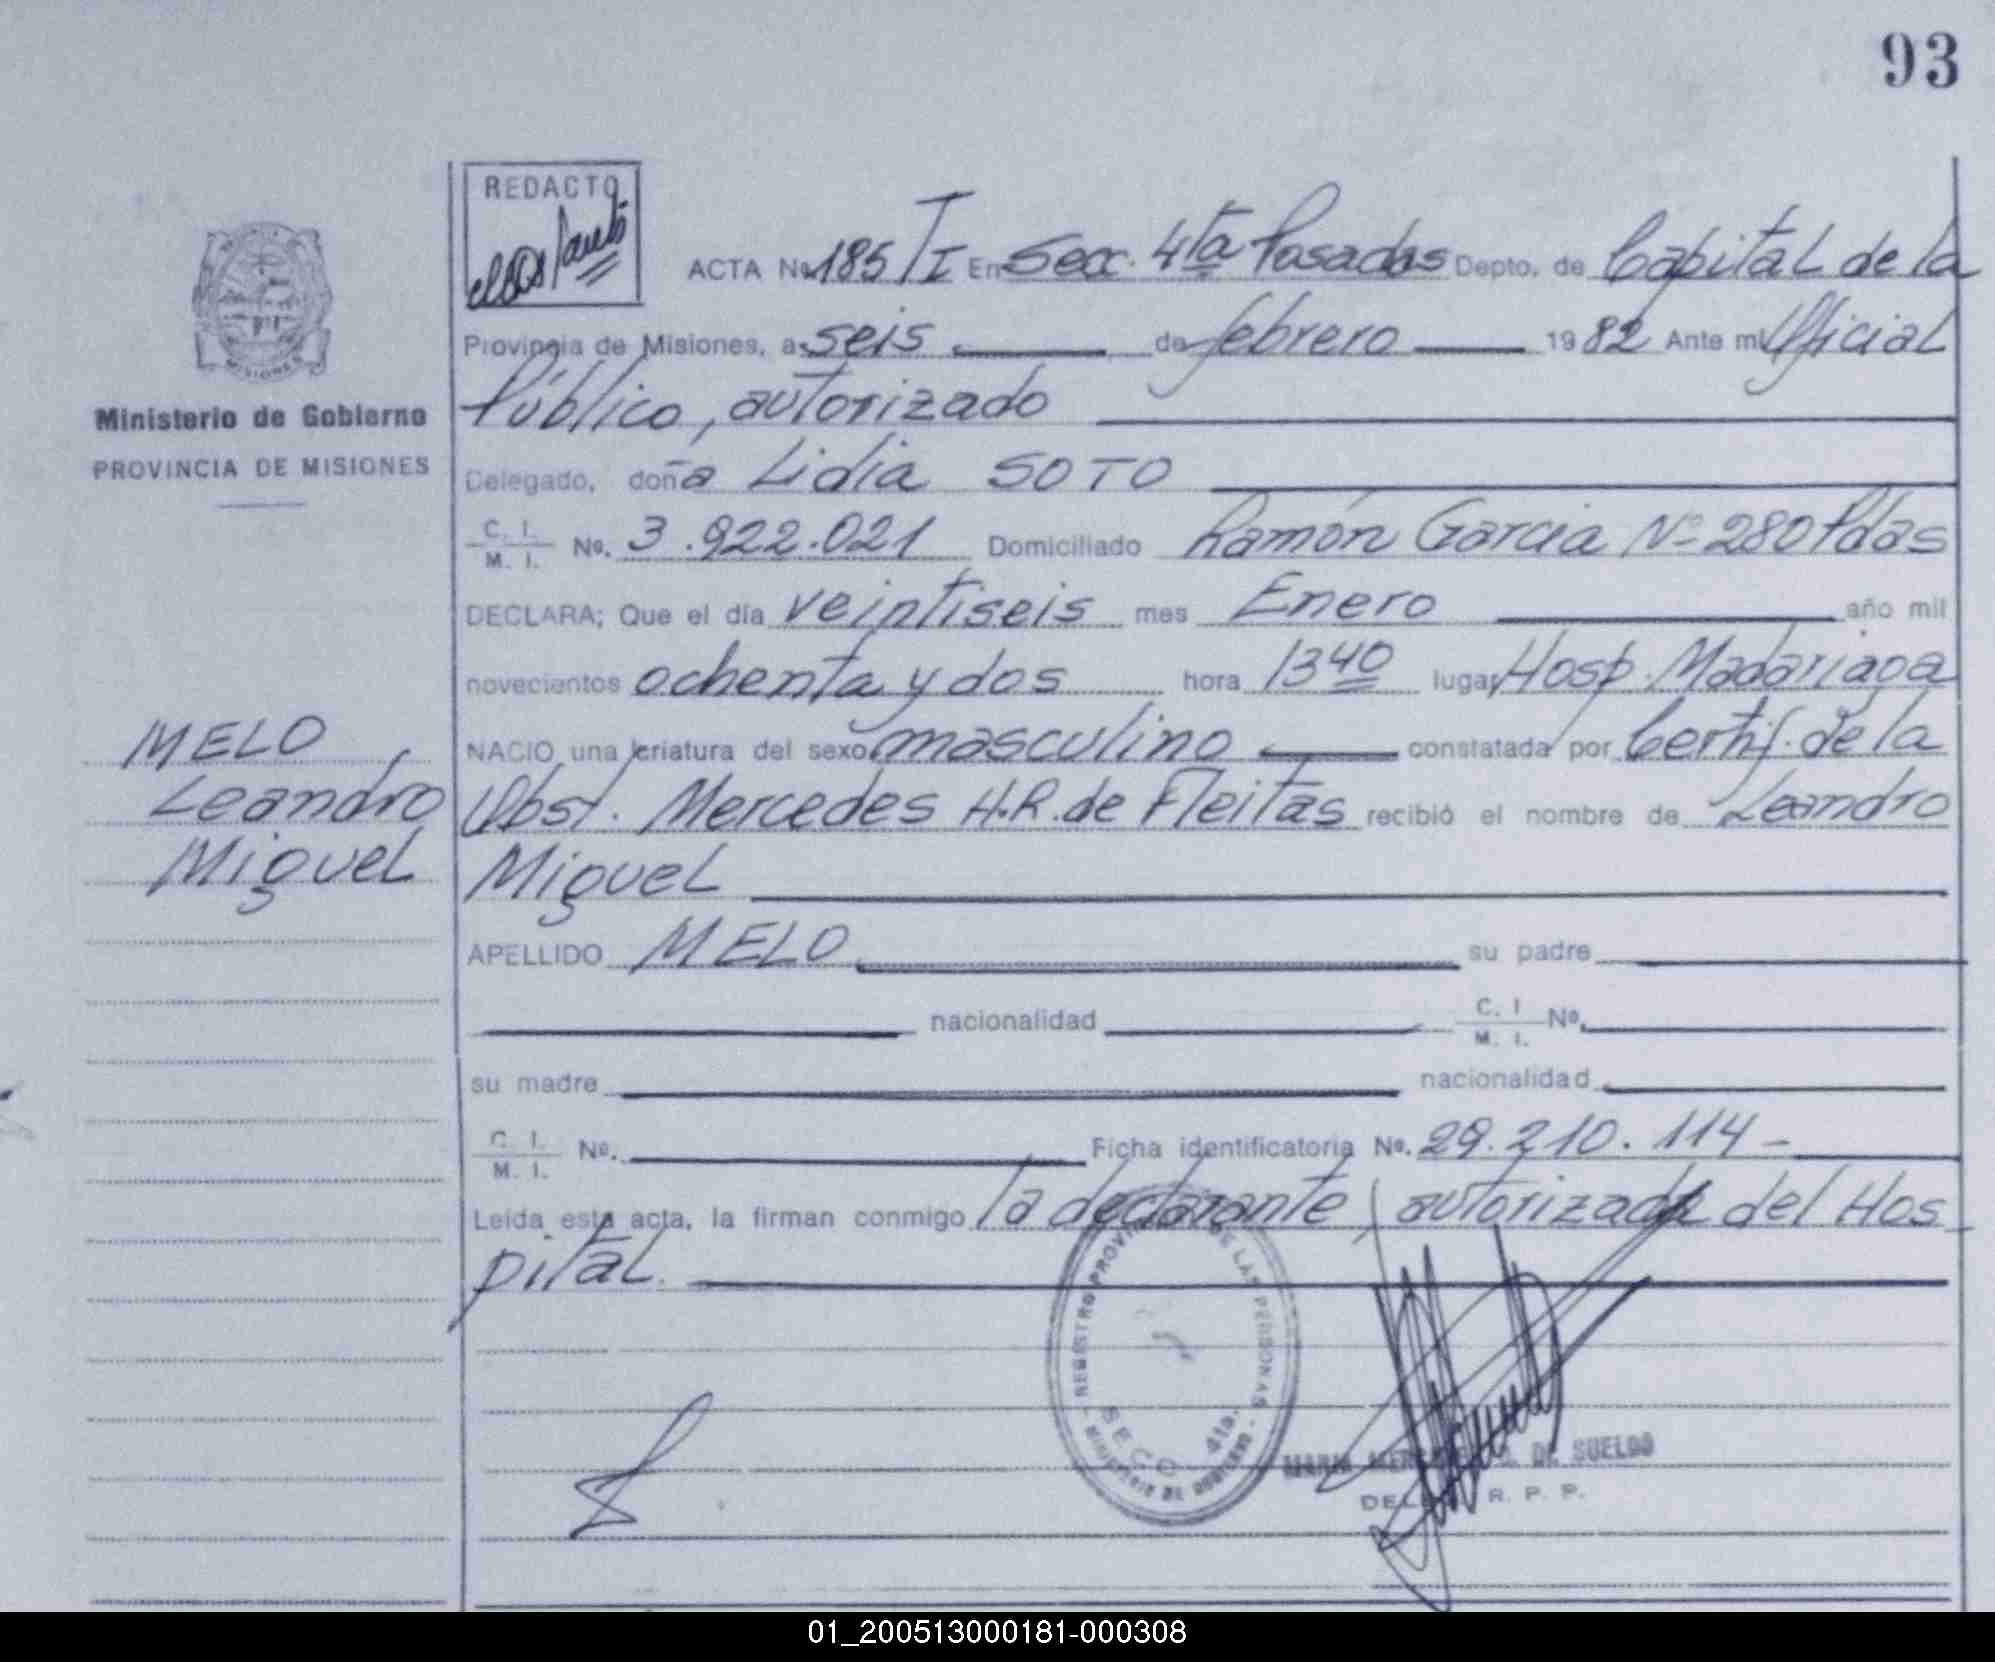 93
REDACTO
ACTA Nº 185/I En Secc. 4ta Posadas Depto. de Capital de la
Provincia de Misiones, a seis de febrero 1982 Ante mi Oficial
Público, autorizado
Ministerio de Gobierno
PROVINCIA DE MISIONES
Delegado, doña Lidia SOTO
C. I.
M. I. Nº. 3.922.021 Domiciliado Ramón Garcia Nº 280 Pdas
DECLARA; Que el día veintiseis mes Enero año mil
novecientos ochenta y dos hora 13 40 lugar Hosp. Madariaga
NACIO una criatura del sexo masculino constatada por Certif. de la
Obst. Mercedes H.R. de Fleitas recibió el nombre de Leandro
Miguel
MELO
Leandro
Miguel
APELLIDO MELO su padre
nacionalidad C. I
M. I. Nº.
su madre nacionalidad
C. I.
M. I. Nº. Ficha identificatoria Nº. 29.210.114-
Leída esta acta, la firman conmigo la declarante, autorizada del Hos
pital.
REGISTRO PROVINCIAL DE LAS PERSONAS
SECC. 4ta.
MINISTERIO DE GOBIERNO
DE SUELDO
R. P. P.
01_200513000181-000308